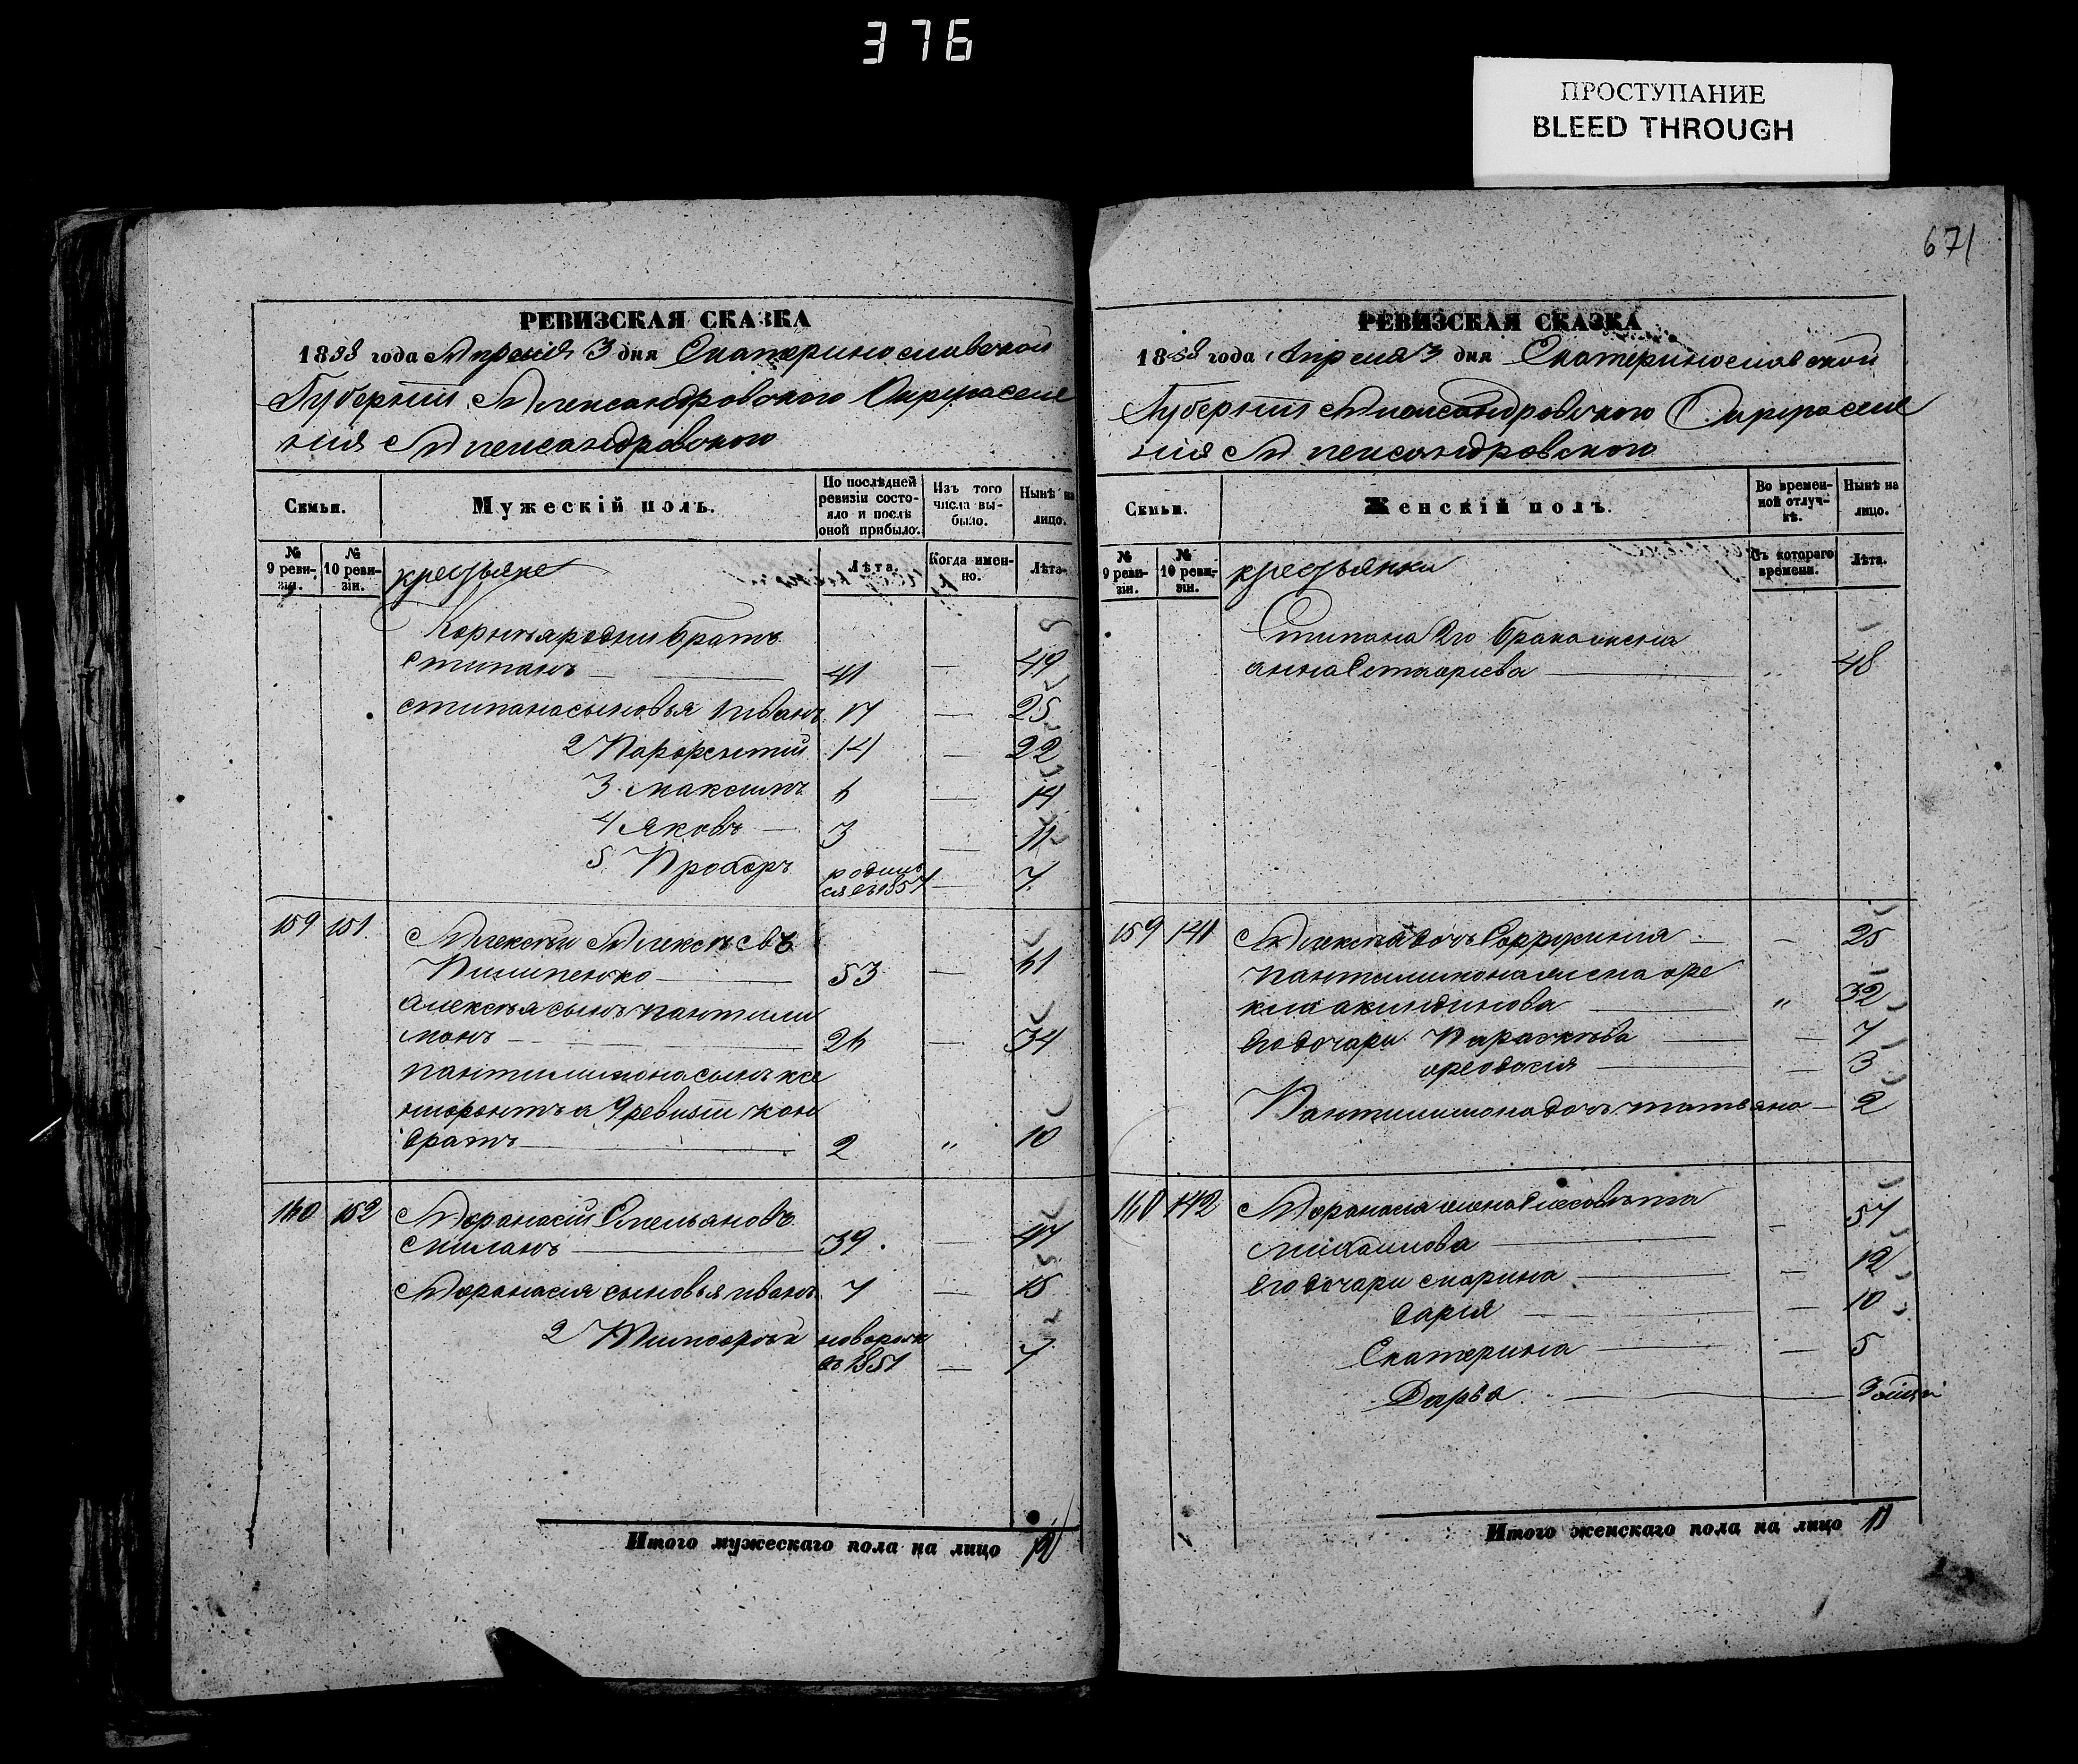 376
ПРОСТУПАНИЕ
BLEED THROUGH
671
РЕВИЗСКАЯ СКАЗКА
1858 года Апреля 3 дня Екатеринославской
Губернии Александровского Округа селе
ния Александровского
Семьи.
Мужескій полъ.
По послѣдней ревизіи состояло и послѣ оной прибыло.
Изъ того числа выбыло.
Нынѣ на лицо.
№ 9 ревизіи.
№ 10 ревизіи.
крестьяне
Лѣта.
Когда именно.
Лѣта.
Корнея родный братъ
Степанъ 41 — 49
степана сыновья Иванъ 17 — 25
2 Парфентий 14 — 22
3 максимъ 6 — 14
4 яковъ — 3 — 11
5 Прохоръ родил
ся въ 1851 — 7
159 151 Алексей Алексеевъ
Пилипенко 53 — 61
Алексея сынъ пантили
монъ 26 — 34
пантилимона сынъ
9 ревизии кон
дратъ 2 „ 10
160 152 Афанасий Емельяновъ
Миланъ 39 — 47
Афанасия сыновья иванъ 7 — 15
2 Тимофей новорож
въ 1851 — 7
Итого мужескаго пола на лицо
РЕВИЗСКАЯ СКАЗКА
1858 года Апреля 3 дня Екатеринославской
Губернии Александровского Округа селе
ния Александровского
Семьи.
Женскій полъ.
Во временной отлучкѣ.
Нынѣ на лицо.
№ 9 ревизіи.
№ 10 ревизіи.
крестьянки
Съ котораго времени.
Лѣта.
Степана 2го брака жена
анна 48
159 141 Алексея дочь — — 25
пантилимона жена фе
кла акиндинова „ 32
Его дочари Парасковья — 7
феодосія — 3
Пантилимона дочь татьяна — 2
160 142 Афанасия жена Елисавѣта
михайлова — 57
Его дочари марина — 12
Дарія — 10
Екатерина — 5
Дарья 3
Итого женскаго пола на лицо 11